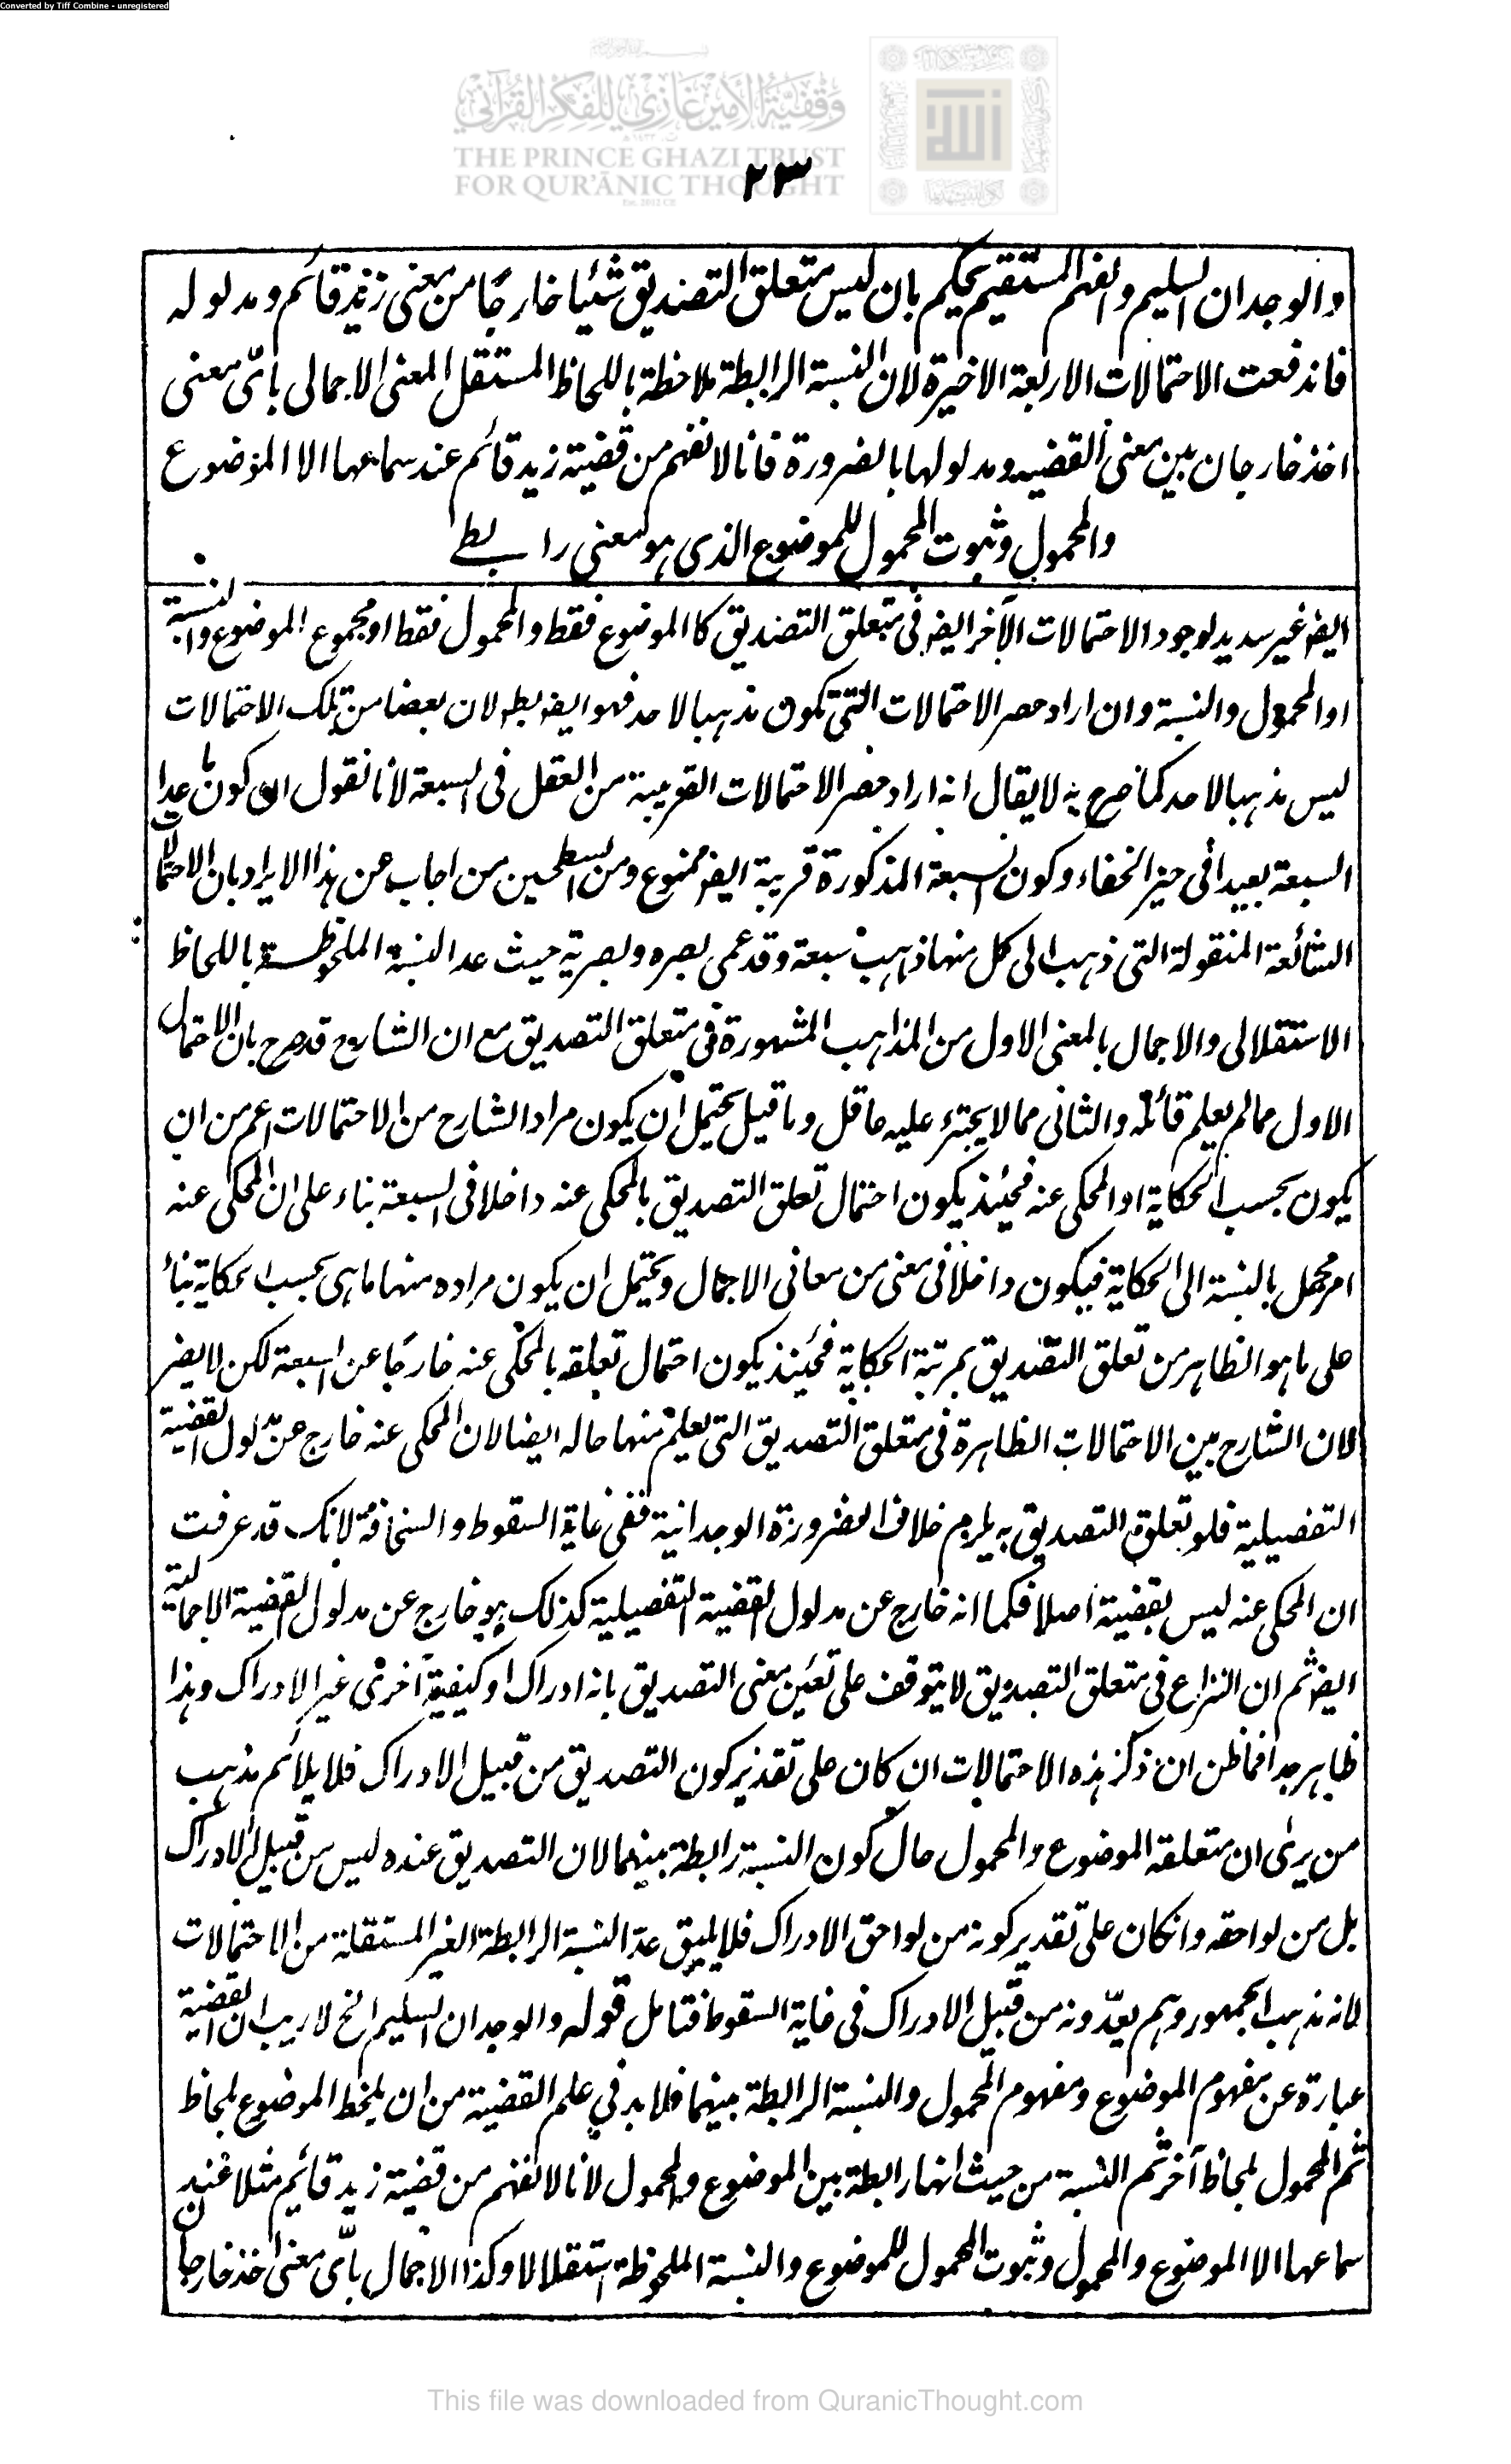 Converted by Tiff Combine - unregistered
وقفية الأمير غازي للفكر القرآني
THE PRINCE GHAZI TRUST
FOR QUR'ĀNIC THOUGHT
Est. 2012 CE
٢٣
والوجدان السليم والفهم المستقيم يحكم بان ليس متعلق التصديق شيئا خارجًا من معنى زيد قائم ومدلوله
فاندفعت الاحتمالات الاربعة الاخيرة لان النسبة الرابطة ملاحظة باللحاظ المستقل المعنى الاجمالى بأىّ معنى
اخذ خارجان بين معنى القضيه ومدلولها بالضرورة فانا لا نفهم من قضية زيد قائم عند سماعها الا الموضوع
والمحمول وثبوت المحمول للموضوع الذى هو معنى رابط
ايضا غير سديد لوجود الاحتمالات الآخر ايضا فى متعلق التصديق كا الموضوع فقط والمحمول فقط او مجموع الموضوع والنسبة
او المحمول والنسبة وان اراد حصر الاحتمالات التى تكون مذهبا لاحد فهو ايضا بط لان بعضا من تلك الاحتمالات
ليس مذهبا لاحد كما صرح به لا يقال انه اراد حصر الاحتمالات القريبة من العقل فى السبعة لانا نقول ان كون ما عدا
السبعة بعيدا فى حيز الخفاء وكون السبعة المذكورة قريبة ايضا ممنوع ومن السطحيين من اجاب عن هذا الايراد بان الاحتمالات
الشائعة المنقولة التى ذهب الى كل منها ذاهب سبعة وقد عمى بصره وبصريته حيث عد النسبة الملحوظة باللحاظ
الاستقلالى والاجمال بالمعنى الاول من المذاهب المشهورة فى متعلق التصديق مع ان الشارح قد صرح بان الاحتمال
الاول مما لم يعلم قائله والثانى مما لا يجترء عليه عاقل وما قيل يحتمل ان يكون مراد الشارح من الاحتمالات اعم من ان
يكون بحسب الحكاية او المحكى عنه فحينئذ يكون احتمال تعلق التصديق بالمحكى عنه داخلا فى السبعة بناء على ان المحكى عنه
امر مجمل بالنسبة الى الحكاية فيكون داخلا فى معنى من معانى الاجمال ويحتمل ان يكون مراده منها ما هى بحسب الحكاية بناءً
على ما هو الظاهر من تعلق التصديق بمرتبة الحكاية فحينئذ يكون احتمال تعلقه بالمحكى عنه خارجًا عن السبعة لكن لا يضر
لان الشارح بين الاحتمالات الظاهرة فى متعلق التصديق التى يعلم منها حاله ايضا لان المحكى عنه خارج عن مدلول القضية
التفصيلية فلو تعلق التصديق به يلزم خلاف الضرورة الوجدانية ففى غاية السقوط والسخافة لانك قد عرفت
ان المحكى عنه ليس بقضية اصلا فكما انه خارج عن مدلول القضية التفصيلية كذلك هو خارج عن مدلول القضية الاجمالية
ايضا ثم ان النزاع فى متعلق التصديق لا يتوقف على تعين معنى التصديق بانه ادراك او كيفية آخرى غير الادراك وهذا
ظاهر جدا فما ظن ان ذكر هذه الاحتمالات ان كان على تقدير كون التصديق من قبيل الادراك فلا يلائم مذهب
من يرى ان متعلقه الموضوع والمحمول حال كون النسبة رابطة بينهما لان التصديق عنده ليس من قبيل الادراك
بل من لواحقه وانكان على تقدير كونه من لواحق الادراك فلا يليق عدّ النسبة الرابطة الغير المستقلة من الاحتمالات
لانه مذهب الجمهور وهم يعدّونه من قبيل الادراك فى غاية السقوط فتامل قوله والوجدان السليم الخ لا ريب ان القضية
عبارة عن مفهوم الموضوع ومفهوم المحمول والنسبة الرابطة بينهما فلا بد فى علم القضية من ان يلحظ الموضوع لحاظ
ثم المحمول لحاظ آخر ثم النسبة من حيث انها رابطة بين الموضوع والمحمول لانا لا نفهم من قضية زيد قائم مثلا عند
سماعها الا الموضوع والمحمول وثبوت المحمول للموضوع والنسبة الملحوظة استقلالا وكذا الاجمال بأىّ معنى اخذ خارجان
This file was downloaded from QuranicThought.com